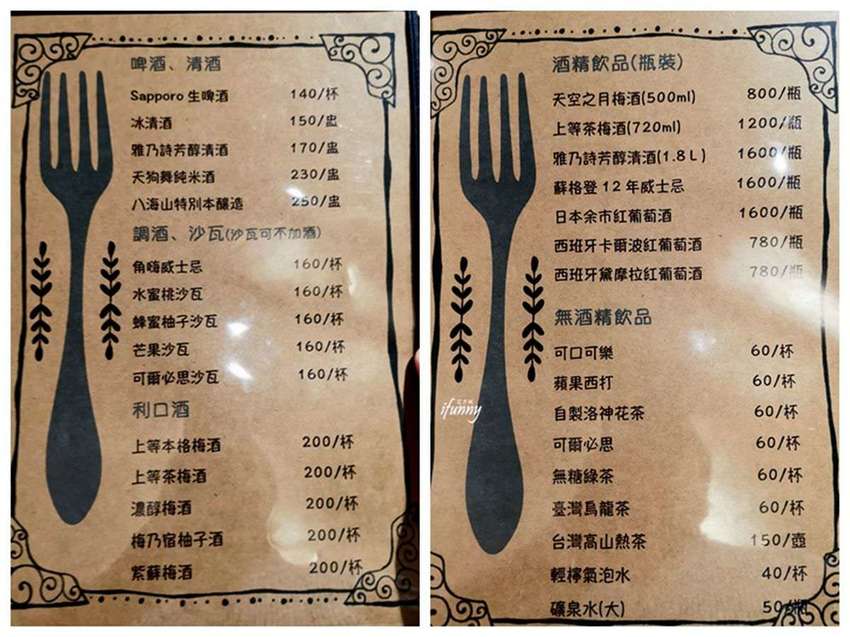 啤酒、清酒
Sapporo 生啤酒 140/杯
冰清酒 150/盅
雅乃詩芳醇清酒 170/盅
天狗舞純米酒 230/盅
八海山特別本釀造 250/盅
調酒、沙瓦(沙瓦可不加酒)
角嗨威士忌 160/杯
水蜜桃沙瓦 160/杯
蜂蜜柚子沙瓦 160/杯
芒果沙瓦 160/杯
可爾必思沙瓦 160/杯
利口酒
上等本格梅酒 200/杯
上等茶梅酒 200/杯
濃醇梅酒 200/杯
梅乃宿柚子酒 200/杯
紫蘇梅酒 200/杯
酒精飲品(瓶裝)
天空之月梅酒(500ml) 800/瓶
上等茶梅酒(720ml) 1200/瓶
雅乃詩芳醇清酒(1.8L) 1600/瓶
蘇格登 12 年威士忌 1600/瓶
日本余市紅葡萄酒 1600/瓶
西班牙卡爾波紅葡萄酒 780/瓶
西班牙黛摩拉紅葡萄酒 780/瓶
無酒精飲品
可口可樂 60/杯
蘋果西打 60/杯
自製洛神花茶 60/杯
可爾必思 60/杯
無糖綠茶 60/杯
臺灣烏龍茶 60/杯
台灣高山熱茶 150/壺
輕檸氣泡水 40/杯
礦泉水(大) 50/瓶
ifunny